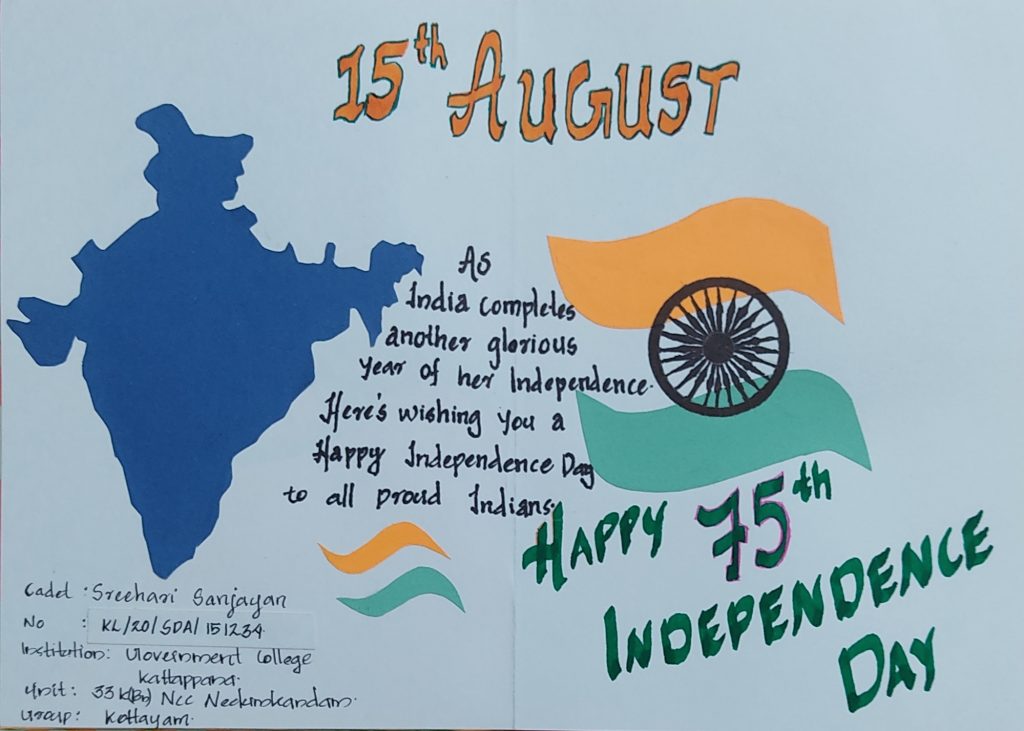 15th AUGUST
As
India completes
another glorious
year of her Independence.
Here's wishing you a
Happy Independence Day
to all proud Indians.
HAPPY 75th
INDEPENDENCE
DAY
Cadet : Sreehari Sanjayan
No : KL/20/SDA/151234
Institution: Government College
Kattappana.
Unit: 33 K(Bn) NCC Nedumkandam.
Group: Kottayam.